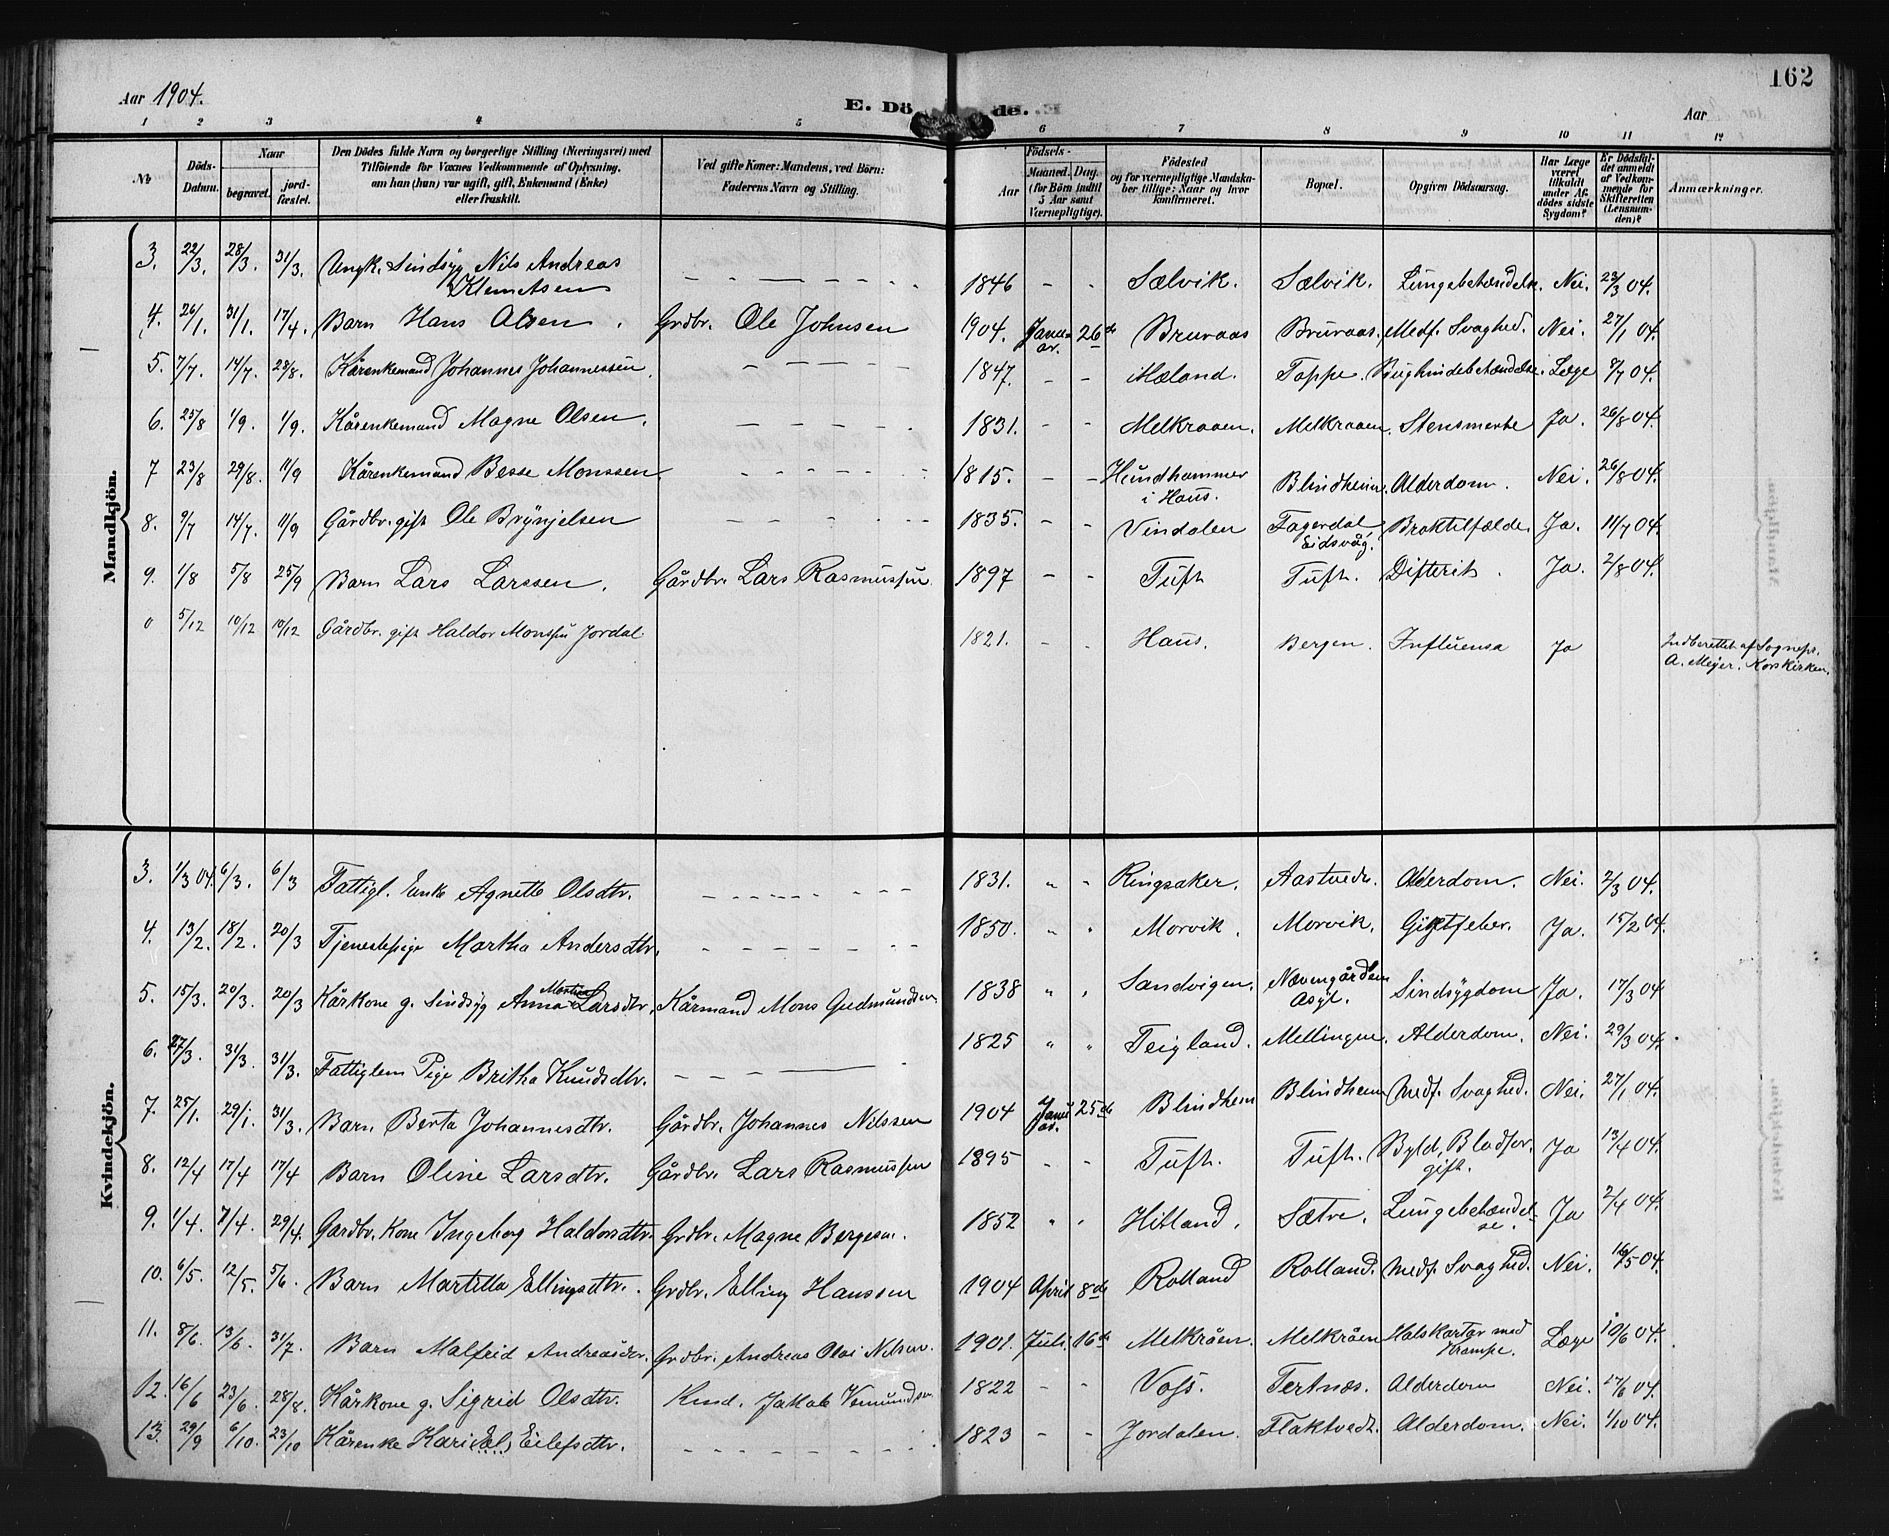 162
Aar 1904.
E. Döde.
Aar
1 2 3 4 5 6 7 8 9 10 11 12
№
Döds-Datum.
Naar
begravet.
jordfæstet.
Den Dödes fulde Navn og borgerlige Stilling (Næringsvei) med
Tilföiende for Voxnes Vedkommende af Oplysning,
om han (hun) var ugift, gift, Enkemand (Enke)
eller fraskilt.
Ved gifte Koner: Mandens, ved Börn:
Faderens Navn og Stilling.
Födsels-
Aar
Maaned. Dag.
(for Börn indtil
5 Aar samt
Værnepligtige).
Födested
og for værnepligtige Mandska-
ber tillige: Naar og hvor
konfirmeret.
Bopæl.
Opgiven Dödsaarsag.
Har Læge
været
tilkaldt
under Af-
dödes sidste
Sygdom?
Er Dödsfal-
det anmeldt
af Vedkom-
mende for
Skifteretten
(Lensman-
den)?
Anmærkninger.
Mandkjön.
3. 22/3. 28/3. 31/3. Ungk. Sindsyg Nils Andreas Klemetsen - - - 1846 - - Sælvik. Sælvik. Lungebetændelse. Nei. 23/3 04.
4. 26/1. 31/1. 17/4. Barn Hans Olsen. Grdbr. Ole Johnsen 1904. Januar. 26de Bruraas Bruraas. Medf. Svaghed. Nei. 27/1 04.
5. 7/7. 14/7. 28/8. Kårenkemand Johannes Johannessen. - - - 1847. - - Mæland. Toppe. Bughindebetændelse. Læge 8/7 04.
6. 25/8 1/9. 1/9. Kårenkemand Magne Olsen. - - - 1831. - - Melkraaen. Melkraaen. Stensmerte Ja. 26/8 04.
7 23/8 29/8. 11/9 Kårenkemand Besse Monssen - - - 1815. - - Hundhammer i Haus. Blindheim. Alderdom. Nei. 26/8 04.
8. 9/7 14/7. 11/9 Gårdbr. gift Ole Brynjelsen - - - 1835. - - Vindalen Fagerdal Eidsvåg. Braktilfælde. Ja. 11/7 04.
9. 1/8 5/8 25/9 Barn Lars Larssen. Gårdbr. Lars Rasmussen 1897 - - Tuft Tuft. Difterit. Ja. 2/8 04.
0 5/12 10/12 10/12 Gårdbr. gift Haldor Monssen Jordal. 1821. - - Haus. Bergen. Influensa Ja Indberettet af Sognepr. A. Meyer. Korskirken.
Kvindekjön.
3. 1/3 04. 6/3. 6/3 Fattigl. Enke Agnette Olsdtr. - - - 1831. " " Ringsaker. Aastvedt. Alderdom. Nei. 2/3 04.
4. 13/2. 18/2. 20/3 Tjenestepige Martha Andersdtr. - - - 1850. " " Morvik. Morvik. Gigtfeber. Ja. 15/2 04.
5. 15/3. 20/3. 20/3 Kårkone g. Sindsyg Anna Larsdtr. Kårmand Mons Gudmundsen. 1838 " " Sandvigen. Nevengården Asyl. Sindsygdom Ja. 17/3 04
6. 27/3. 31/3. 31/3. Fattiglem Pige Britha Knudsdtr. - - - 1825 " " Teigland. Mellingen. Alderdom. Nei. 29/3 04.
7. 25/1. 29/1. 31/3. Barn Berta Johannesdtr. Gårdbr. Johannes Nilssen 1904 Januar. 25de Blindhem Blindheim Medf. Svaghed. Nei. 27/1 04.
8. 12/4 17/4 17/4 Barn Oline Larsdtr. Gårdbr. Lars Rasmussen 1895 - - Tuft. Tuft. Byld, Blodforgift. Ja 13/4 04.
9. 1/4. 7/4. 29/4. Gardbr. Kone Ingeborg Haldorsdtr. Grdbr. Magne Bergesen. 1852 " " Hitland. Sætre. Lungebetændelse. Ja 2/4 04.
10. 6/5. 12/5. 5/6. Barn Martilla Ellingsdtr. Grdbr. Elling Hanssen 1904 April 8de Rolland Rolland. Medf. Svaghed. Nei. 16/5 04.
11. 8/6. 13/6. 31/7. Barn Malfrid Andreasdtr. Grdbr. Andreas Olai Nilsen. 1901. Juli. 16de Melkråen. Melkråen Halskartar med Krampe. Læge 10/6 04.
12. 16/6 23/6. 28/8. Kårkone g. Sigrid Olsdtr. Kmd. Jakob Vemundsen 1822 - - Voss. Tertnæs. Alderdom Nei. 17/6 04.
13. 29/9 6/10. 23/10 Kårenke Kari Eilefsdtr. - - - 1823 - - Jordalen. Flaktvedt. Alderdom. Nei. 1/10 04.